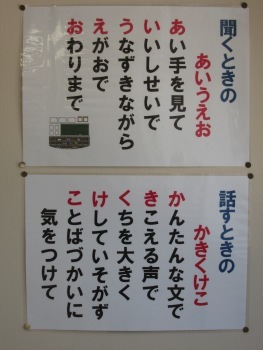 聞くときの
あいうえお
あい手を見て
いいしせいで
うなずきながら
えがおで
おわりまで
話すときの
かきくけこ
かんたんな文で
きこえる声で
くちを大きく
けしていそがず
ことばづかいに
気をつけて